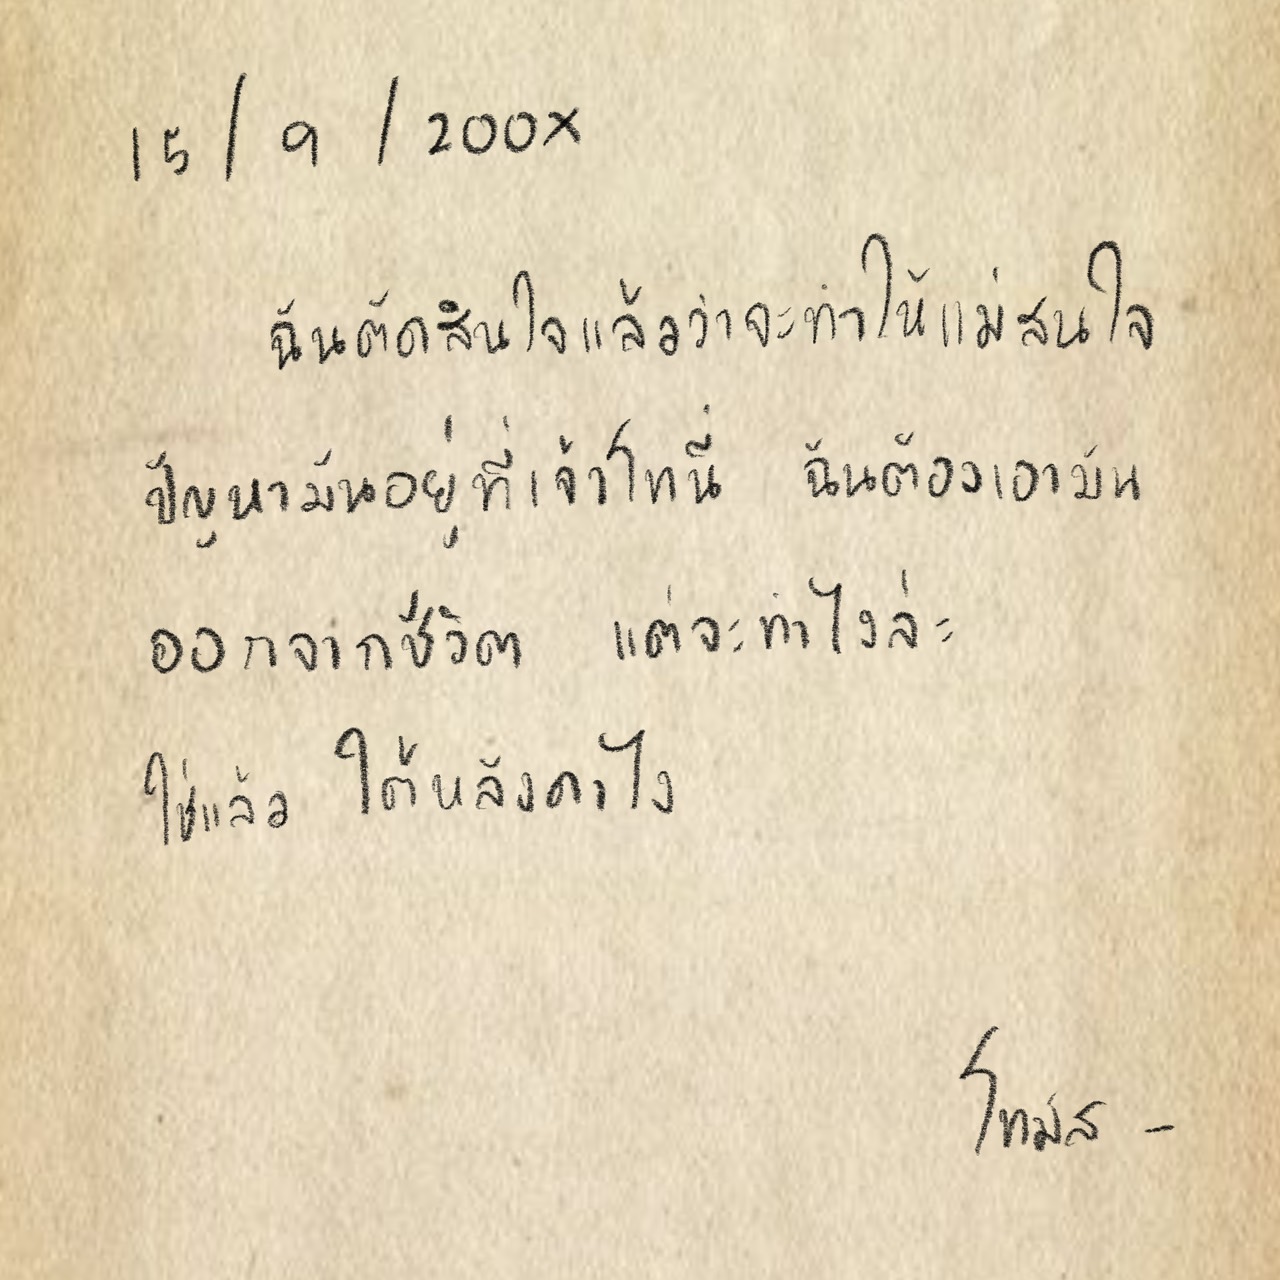 15/9/200x
ฉันตัดสินใจแล้วว่าจะทำให้แม่สนใจ
ปัญหามันอยู่ที่เจ้าโทนี่ ฉันต้องเอามัน
ออกจากชีวิต แต่จะทำไงล่ะ
ใช่แล้ว ใต้หลังคาไง
โทมัส -